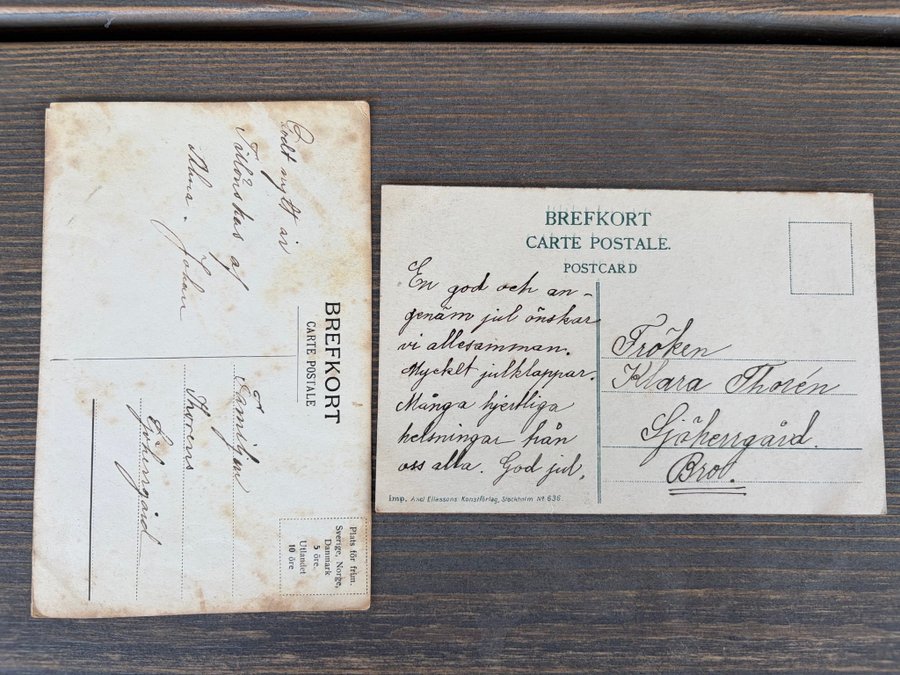 BREFKORT
CARTE POSTALE
Godt nytt år
Tillönskas af
Alma. Johan
Familjen
Thorens
Sjöhergård
Plats för frim.
Sverige, Norge,
Danmark
5 öre.
Utlandet
10 öre
BREFKORT
CARTE POSTALE.
POSTCARD
En god och an-
genäm jul önskar
vi allesamman.
Mycket julklappar.
Många hjertliga
helsningar från
oss alla. God jul.
Imp. Axel Eliassons Konstförlag, Stockholm Nº 636.
Fröken
Klara Thorén
Sjöherrgård.
Bro.